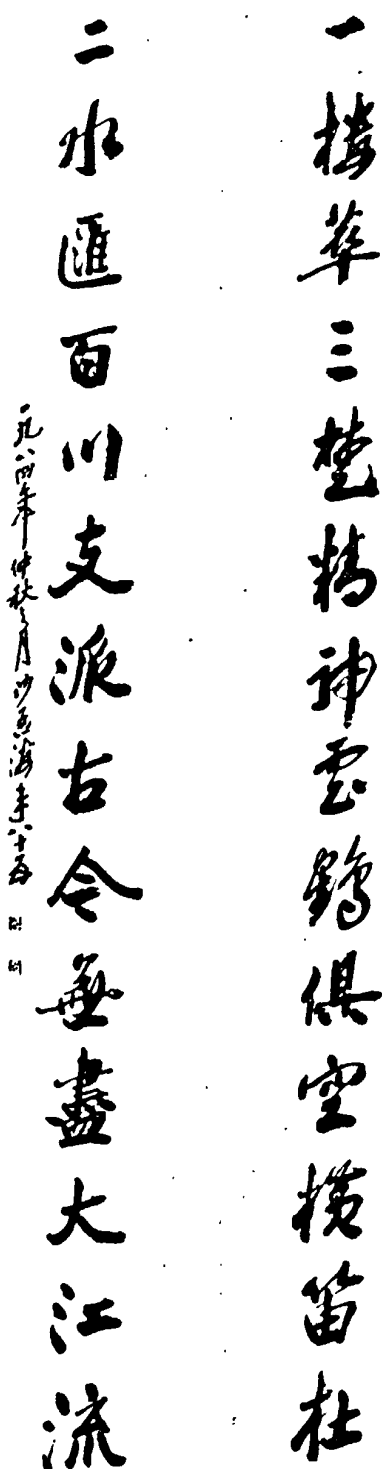 一楼萃三楚精神雲鶴俱空横笛在
二水匯百川支派古今無盡大江流
一九八四年仲秋之月沙孟海書八十五